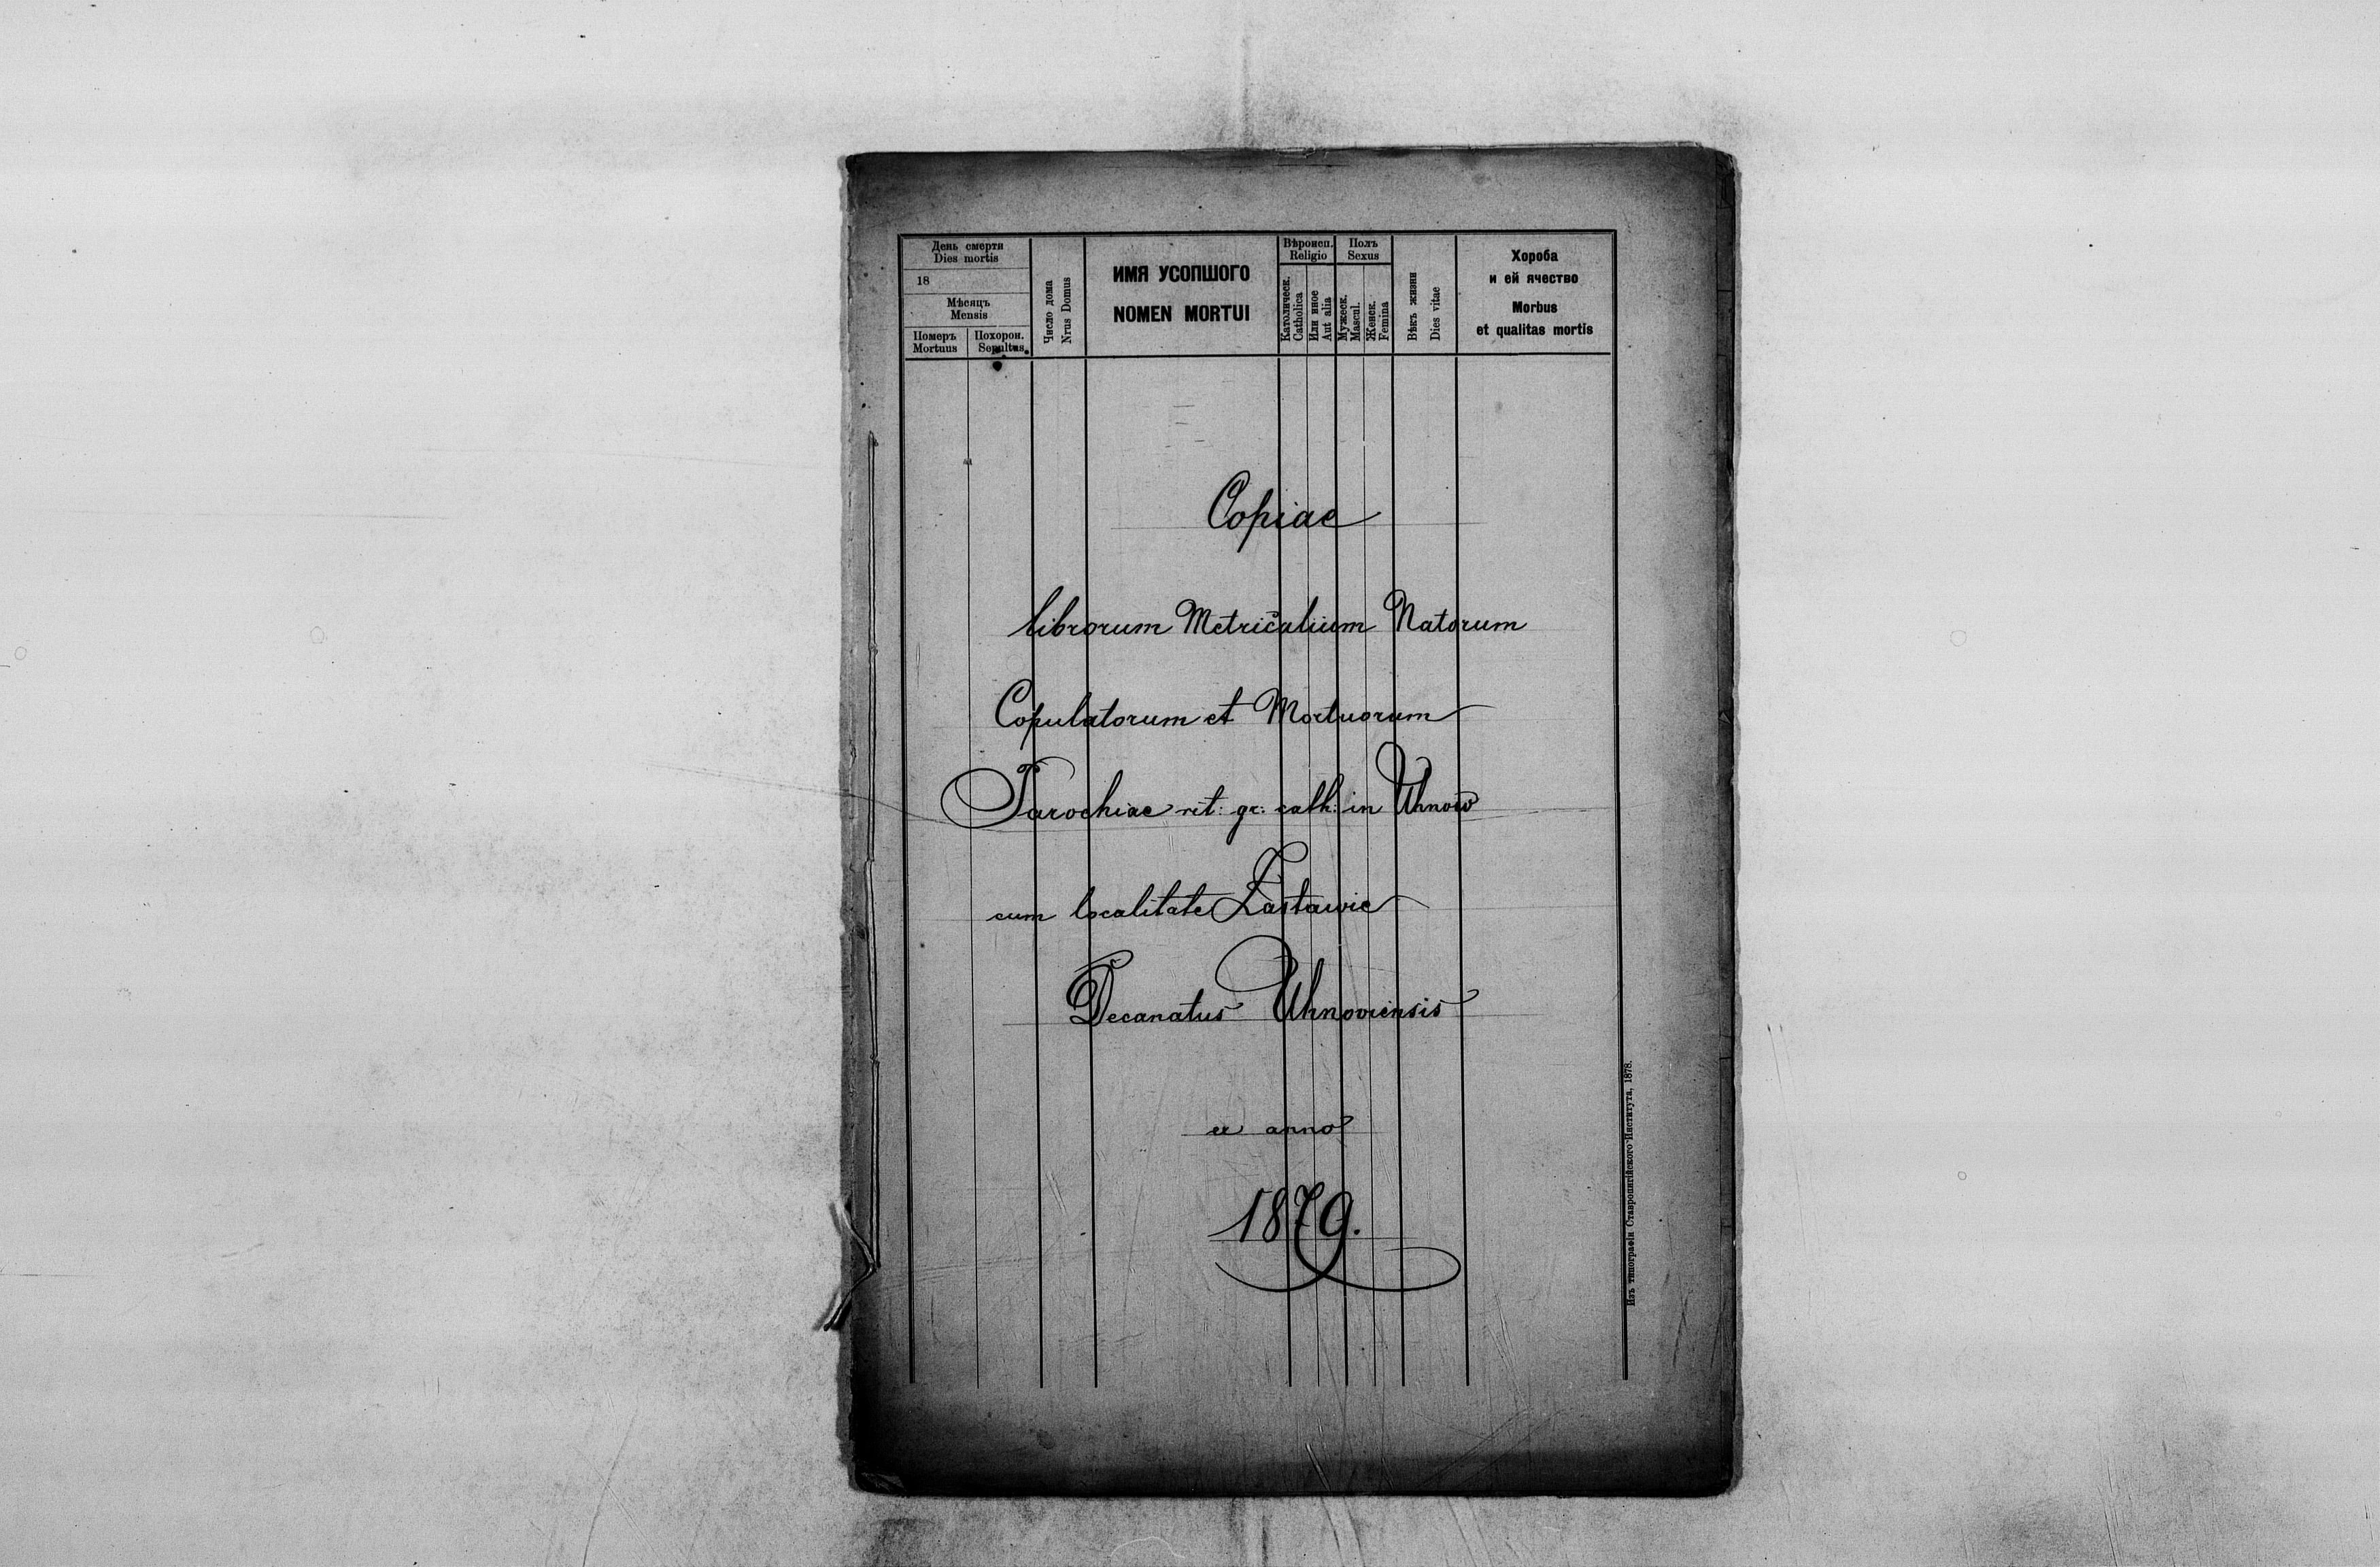 День смерти
Dies mortis
18
Мѣсяцъ
Mensis
Померъ
Mortuus
Похорон.
Sepultus
Число дома
Nrus Domus
ИМЯ УСОПШОГО
NOMEN MORTUI
Вѣроисп.
Religio
Католическ.
Catholica
Или иное
Aut alia
Полъ
Sexus
Мужеск.
Mascul.
Женск.
Femina
Вѣкъ жизни
Dies vitae
Хороба
и ей ячество
Morbus
et qualitas mortis
Copiae
librorum Metricalium Natorum
Copulatorum et Mortuorum
Parochiae rit: gr: cath: in Uhnow
cum localitate Zastawie
Decanatus Uhnoviensis
ex anno
1879.
Изъ типографіи Ставропигійского Института, 1878.